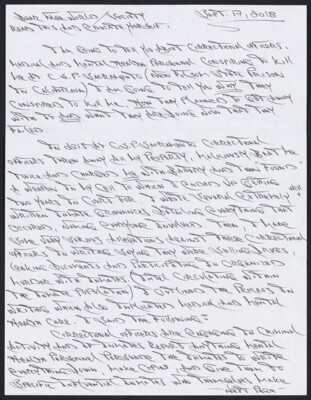 Dear Free World/Society Sept. 17, 2018
Read this and educate yourself.
I am going to tell you about correctional officers,
medical and mental health personnel conspiring to kill
me at C.S.P. Sacramento (New Folsom State Prison
in California) I am going to tell you why they
conspired to kill me. How they planned to get away
with it and what they are doing now that they
failed.
In 2017 at C.S.P. Sacramento correctional
officers threw away all my property, maliciously beat me
twice and charged me with battery and then found
a weapon in my cell to which I ended up getting
two years in court for. I wrote several extremely well
written inmate grievances detailing everything that
occured, naming everyone involved. Then, I made
some very serious allegations against these correctional
officers in writing saying they were selling drugs,
leaking documents and participating in organized
murder with inmates (intel circulating within
the inmate population) I outlined the process in
writing which also implicated medical and mental
health care. I said the following:
Correctional officers are engaging in criminal
activity and if inmates report anything mental
health personnel pressure the inmates to write
everything down, make copies, and give them to
specific influential inmates who themselves make
Next page.